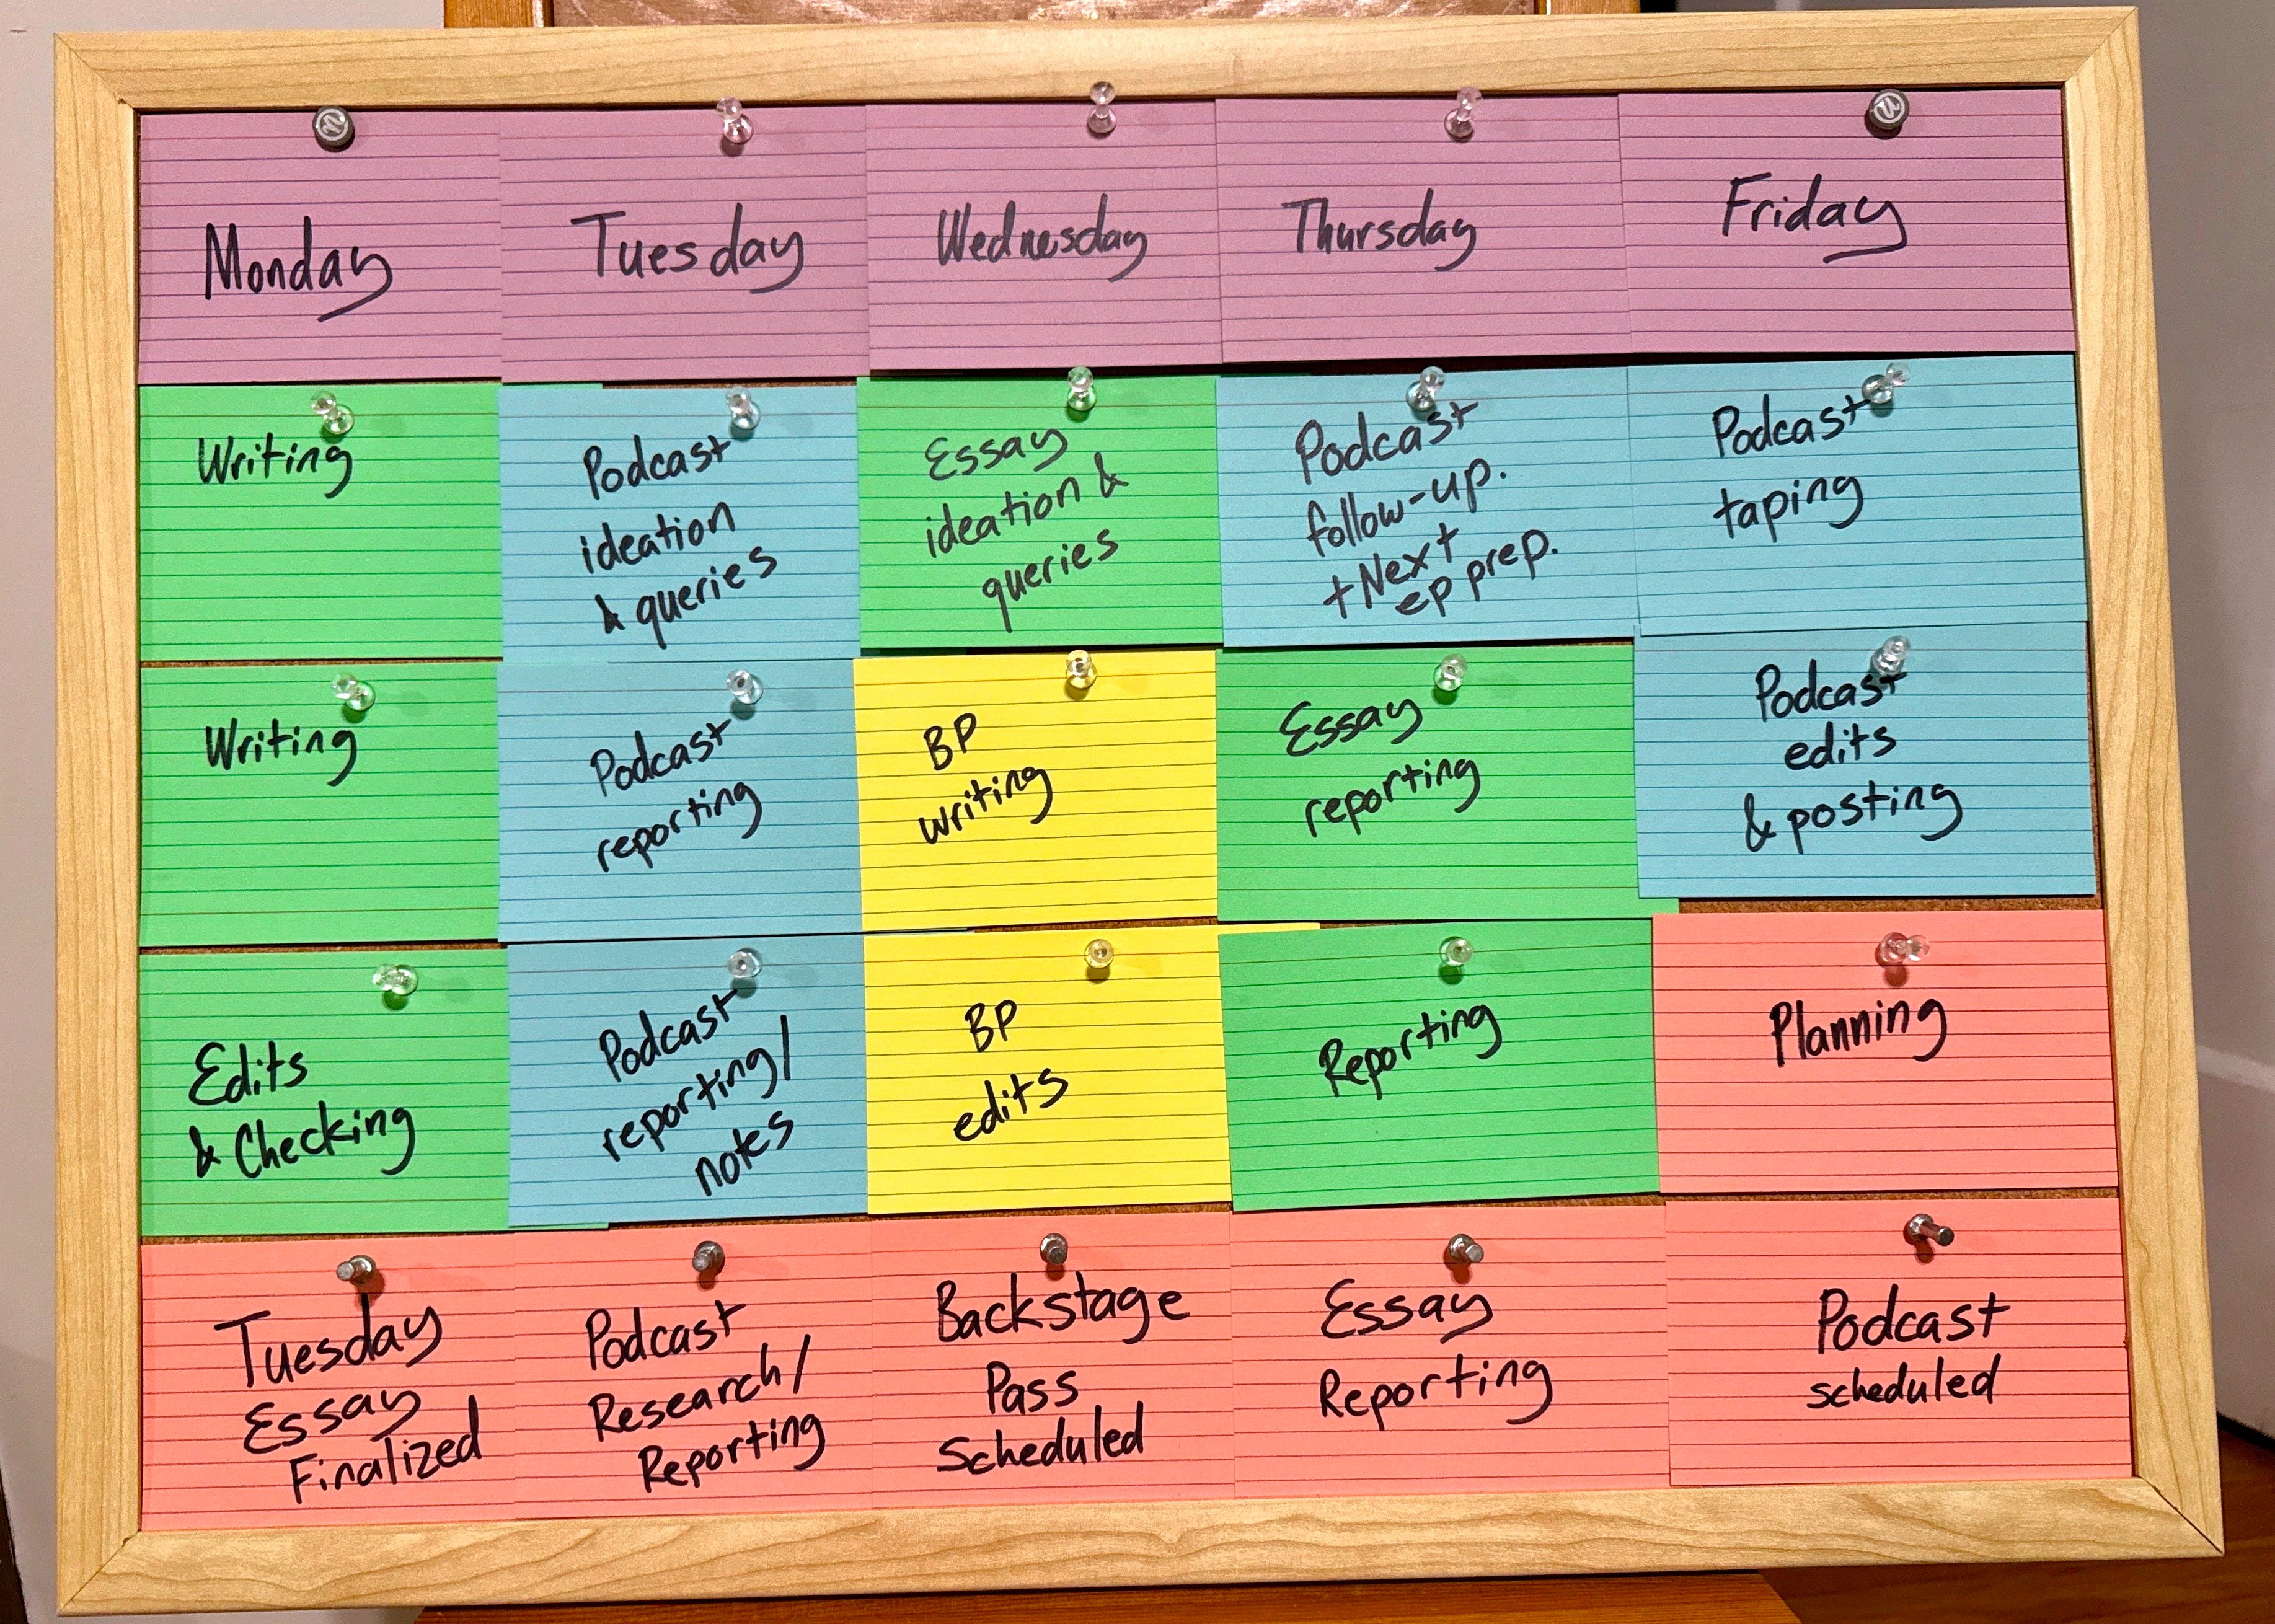 Monday
Tuesday
Wednesday
Thursday
Friday
Writing
Podcast
ideation
& queries
Essay
ideation &
queries
Podcast
follow-up.
+ Next
ep prep.
Podcast
taping
Writing
Podcast
reporting
BP
writing
Essay
reporting
Podcast
edits
& posting
Edits
& Checking
Podcast
reporting/
notes
BP
edits
Reporting
Planning
Tuesday
Essay
Finalized
Podcast
Research/
Reporting
Backstage
Pass
Scheduled
Essay
Reporting
Podcast
scheduled